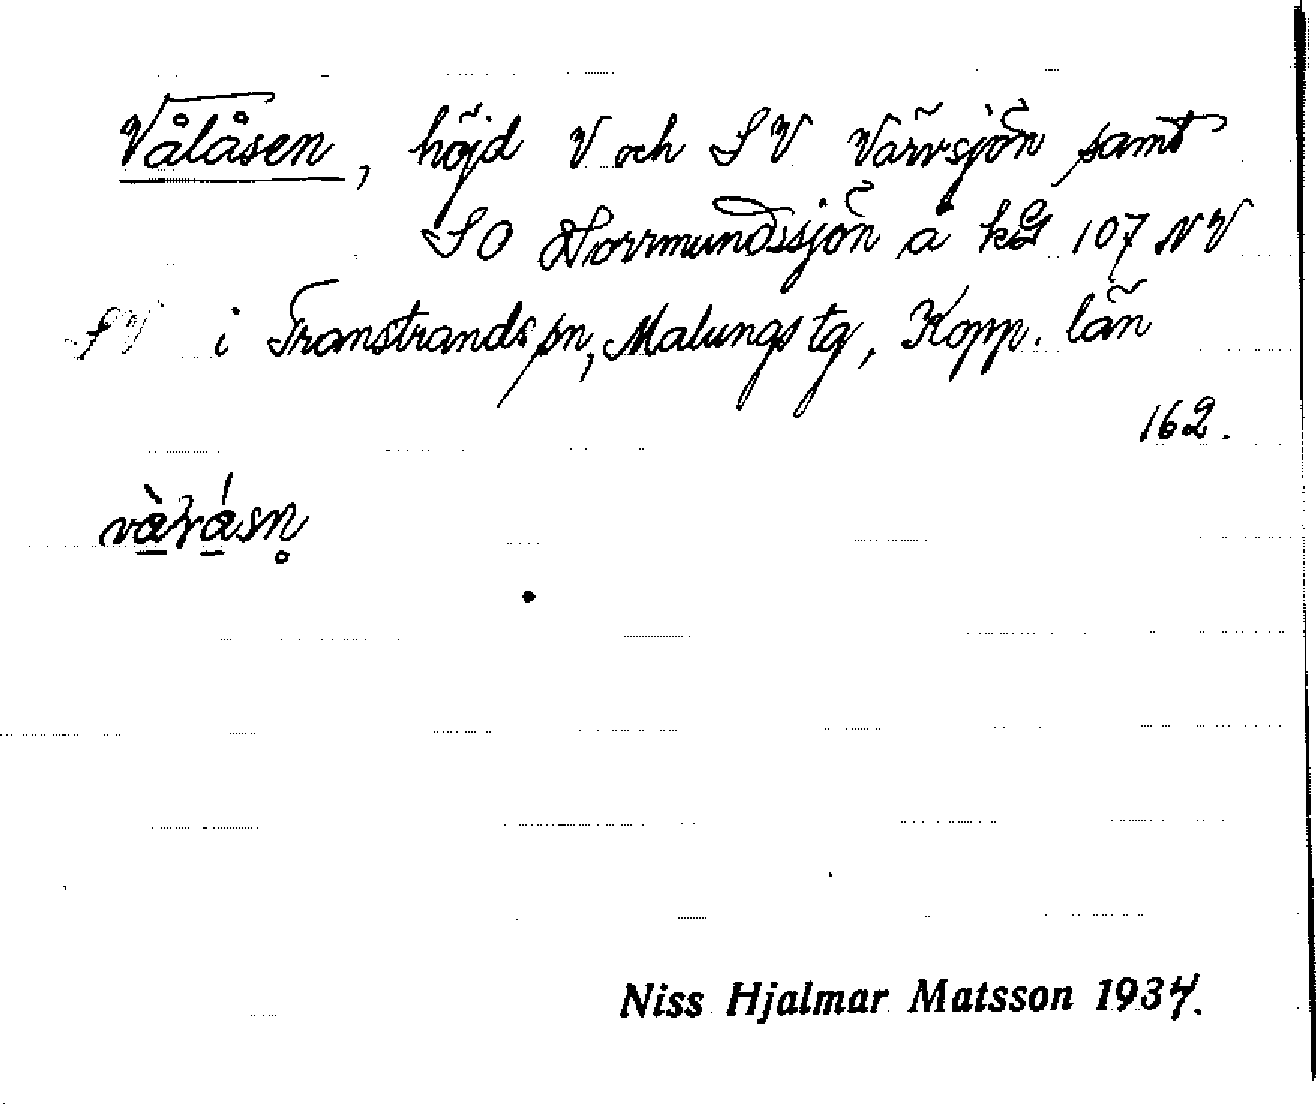 Vålåsen, höjd V och SV Värvsjön samt
SO Horrmundssjön å kbl 107 NV
SV i Transtrands sn, Malungs tg, Kopp. län
162.
Niss Hjalmar Matsson 1937.